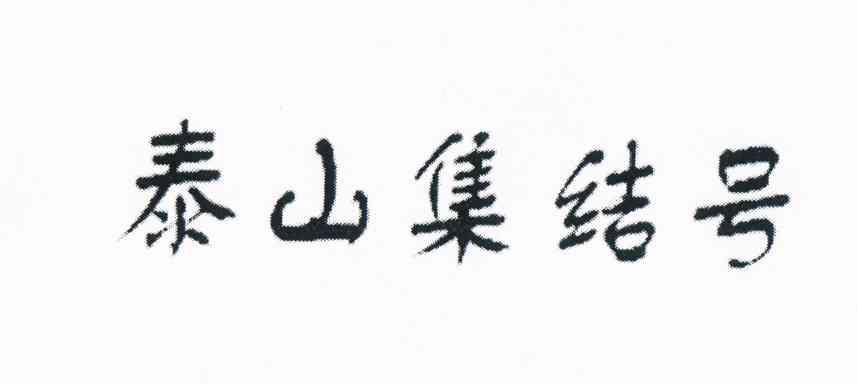 泰山集结号